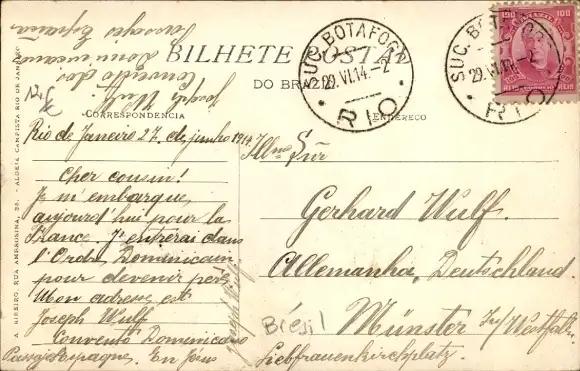 BILHETE POSTAL
DO BRA
CORRESPONDENCIA
ENDEREÇO
SUC. BOTAFOGO
29.VI.14.-2
RIO
SUC. BOT
29.VI.14.-2
RIO
100 100
REIS REIS
A. RIBEIRO, RUA AMBROSINA, 38. - ALDEIA CAMPISTA RIO DE JANEIRO
Rio de Janeiro 27. de junho 1914.
Cher cousin!
Je m'embarque
aujourd'hui pour la
France. J'entrerai dans
l'Ordre Dominicain
pour devenir père
Mon adresse est
Joseph Wulf
Convento Dominicano
Pasajes Espagne. En Jésus
Joseph Wulf
Joseph Wulf
Convento dos
Dominicanos
Passages España
Illmo Snr
Gerhard Wulf.
Allemanha, Deutschland.
Brésil
Münster in/Westfalen
Liebfrauenkirchplatz.